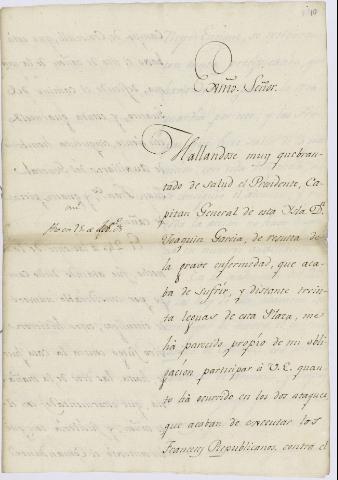 Exmo. Señor.
Hallandose muy quebran-
tado de salud el Presidente, Ca-
pitan General de esta Isla Dn.
Joaquin Garcia, de resulta de
la grave enfermedad, que aca-
ba de sufrir, y distante trein-
ta leguas de esta Plaza, me
há parecido propio de mi obli-
gacion participar á V.E. quan-
to há ocurrido en los dos ataques
que acaban de executar los
Franceses Republicanos, contra el